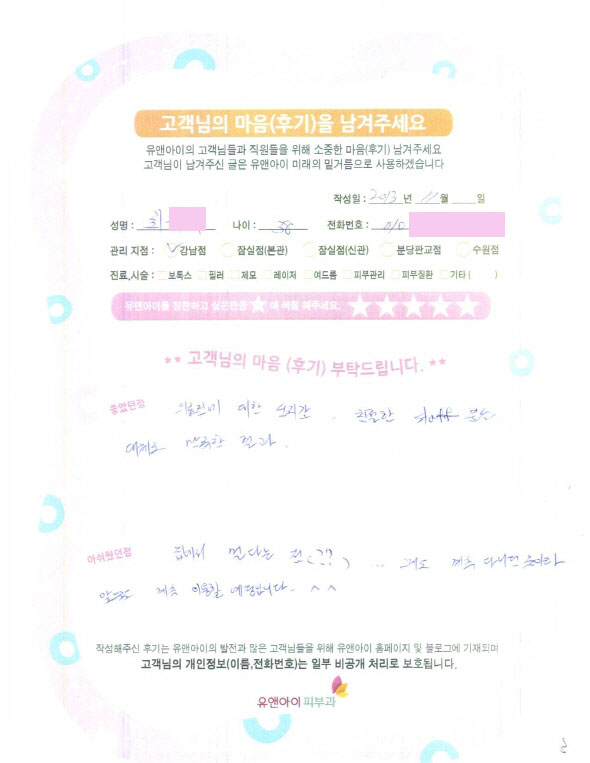 고객님의 마음(후기)을 남겨주세요
유앤아이의 고객님들과 직원들을 위해 소중한 마음(후기) 남겨주세요
고객님이 남겨주신 글은 유앤아이 미래의 밑거름으로 사용하겠습니다
작성일 : 2013 년 11 월 일
성명 : 최 나이 : 38 전화번호 : 010
관리 지점 : 강남점 잠실점(본관) 잠실점(신관) 분당판교점 수원점
진료,시술 : 보톡스 필러 제모 레이저 여드름 피부관리 피부질환 기타 ( )
유앤아이를 칭찬하고 싶은만큼 ★ 에 색칠 해주세요. ★★★★★
** 고객님의 마음 (후기) 부탁드립니다. **
좋았던점 대한 친절한 staff 분들
대체로 만족한 결과.
아쉬웠던점 집에서 멀다는 점(??) ... 그래도 계속 다니던 곳이라
앞으로 계속 이용할 예정입니다. ^^
작성해주신 후기는 유앤아이의 발전과 많은 고객님들을 위해 유앤아이 홈페이지 및 블로그에 기재되며
고객님의 개인정보(이름,전화번호)는 일부 비공개 처리로 보호됩니다.
유앤아이피부과